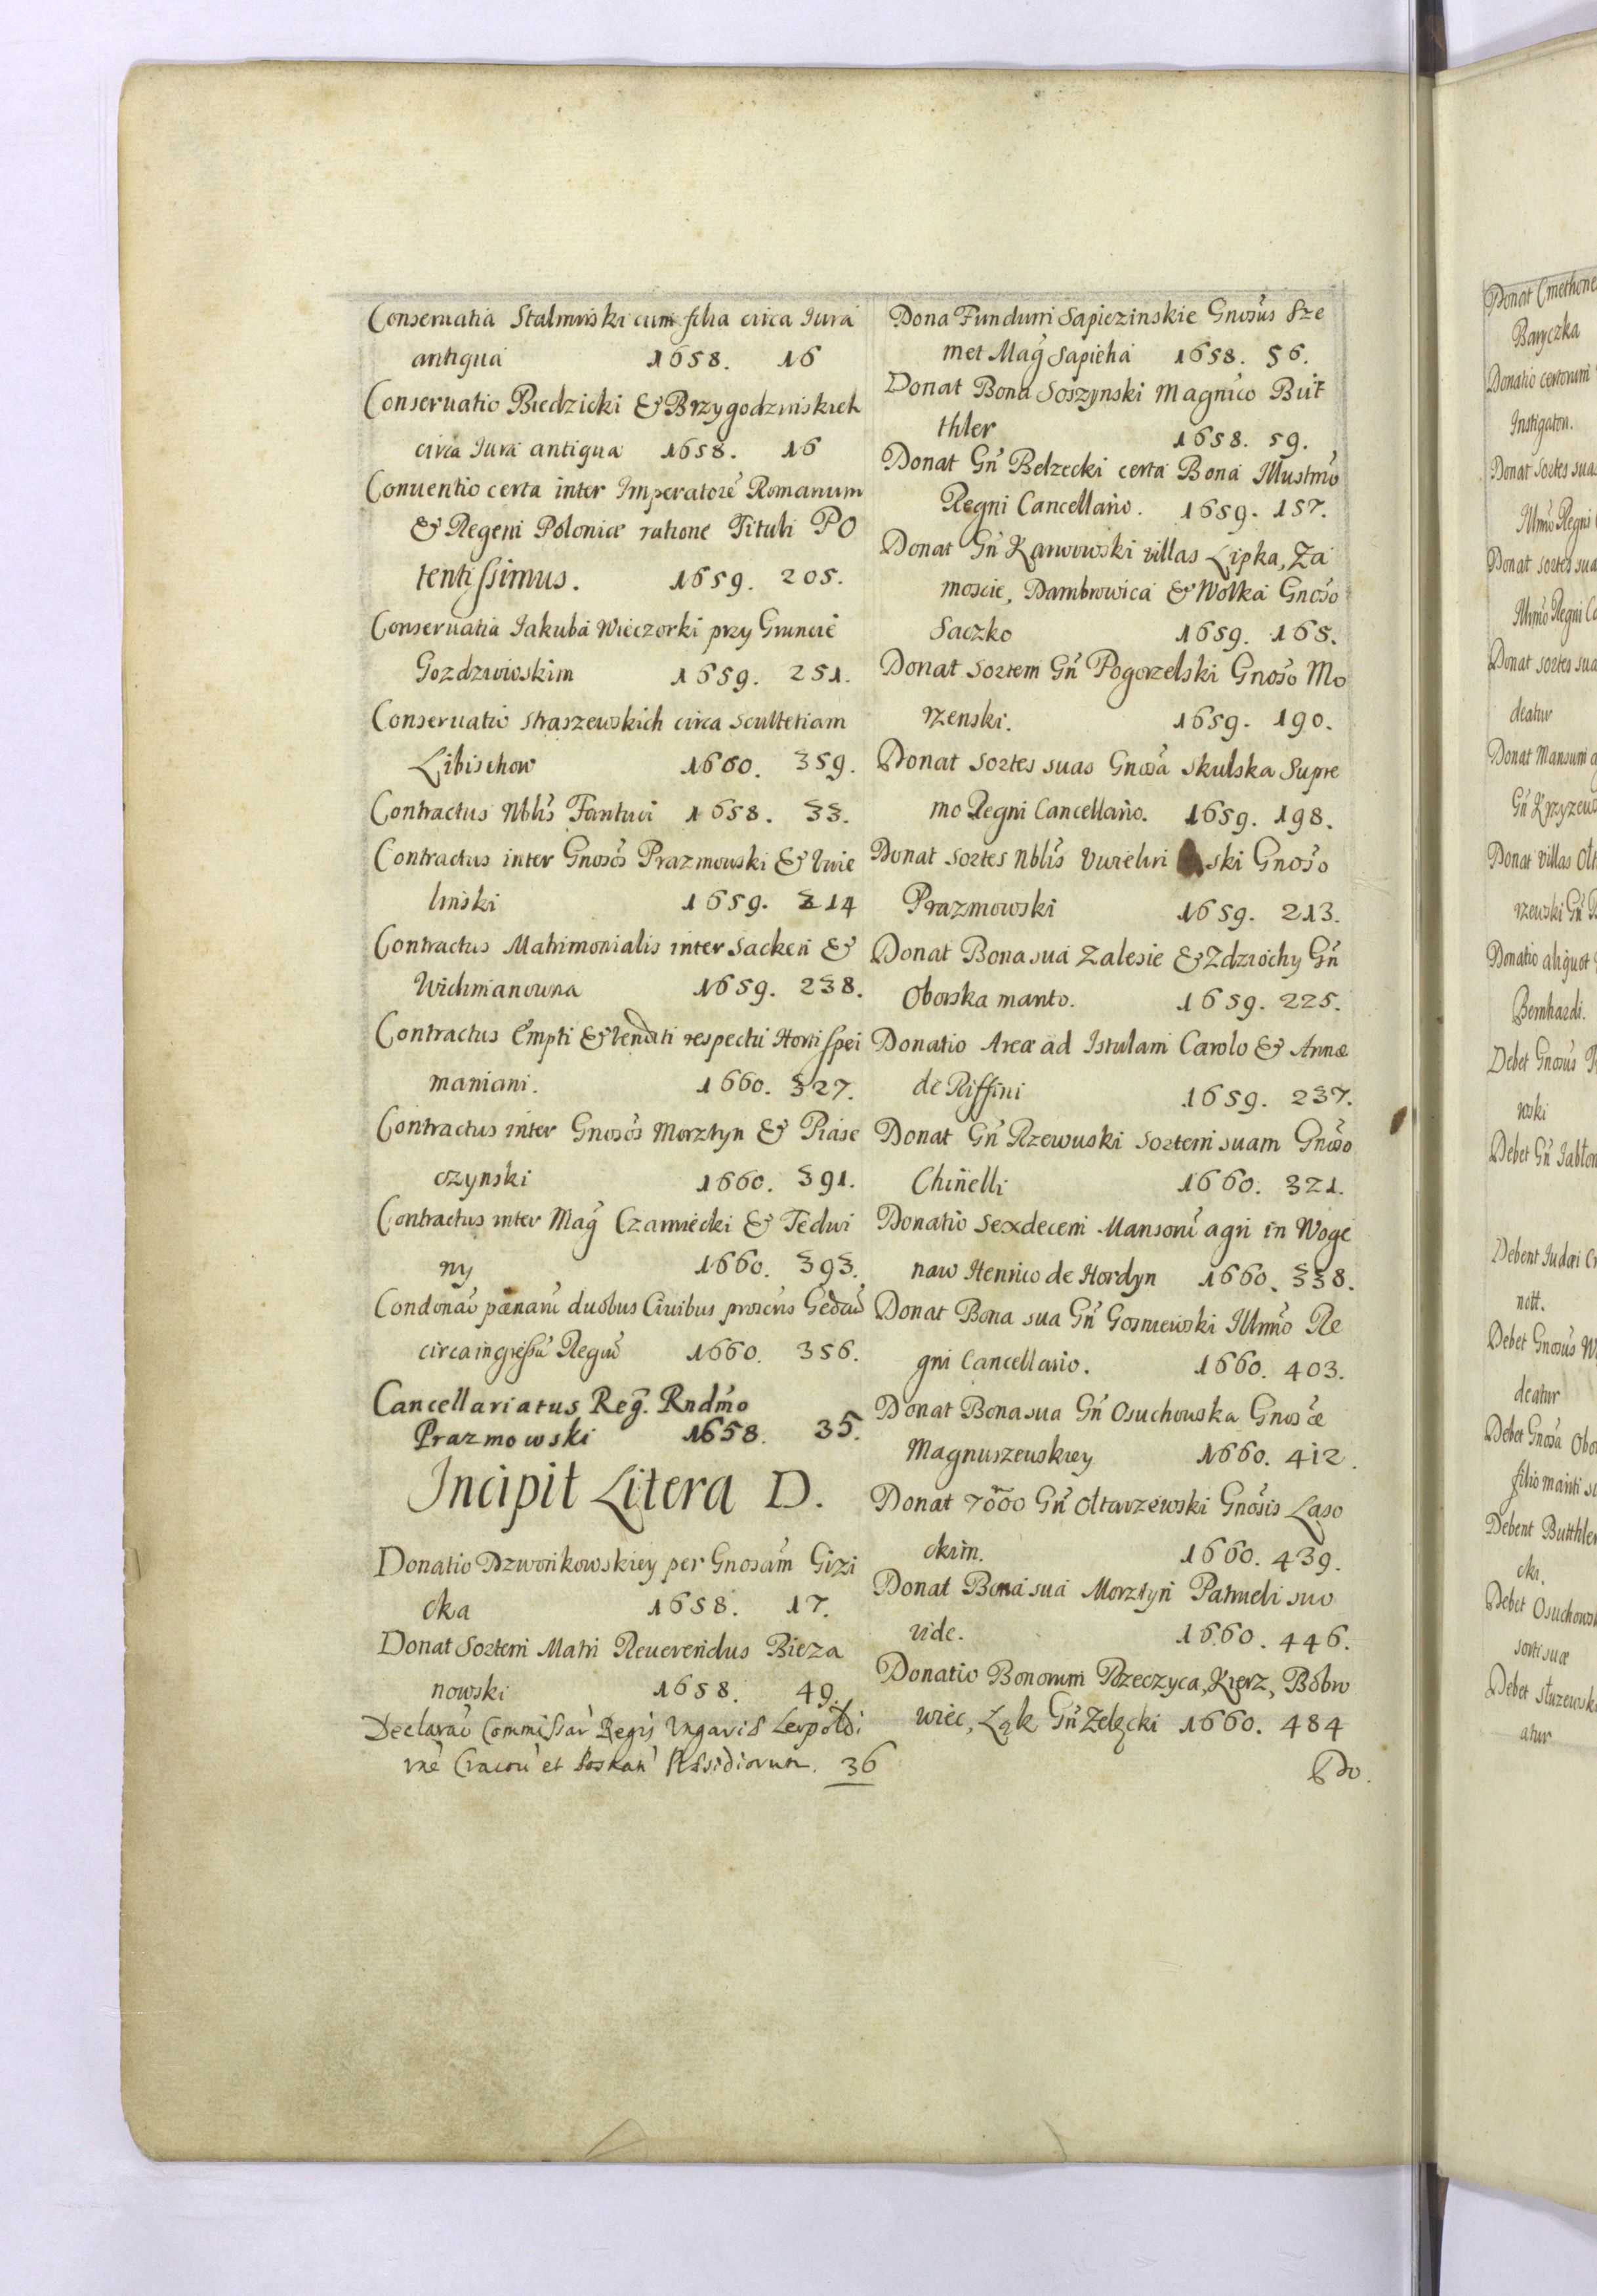 Conseruatia Stalminski cum filia circa Iura
antiqua 1658. 16
Conseruatio Biedzicki & Brzygodzinskich
circa Iura antiqua 1658. 16
Conuentio certa inter Imperatore Romanum
& Regem Poloniæ ratione Tituli PO
tentissimus. 1659. 205.
Conseruatia Iakuba Wieczorki przy Gruncie
Gozdzwioskim 1659. 251.
Conseruatio Straszewskich circa Scultetiam
Libischow 1660. 359.
Contractus Nblis Fantuci 1658. 33.
Contractus inter Gnosos Prazmowski & Vvie
linski 1659. 214
Contractus Matrimonialis inter Sacken &
Wichmanowna 1659. 238.
Contractus Empti & Venditi respectu Horti Spei
maniani. 1660. 327.
Contractus inter Gnosos Morztyn & Piase
czynski 1660. 391.
Contractus inter Mag Czarniecki & Tedwi
ny 1660. 393.
Condonao pænaru duobus Ciuibus proscris Gedan
circa ingressu Regiu 1660. 356.
Cancellariatus Reg. Rndmo
Prazmowski 1658. 35.
Incipit Litera D.
Donatio Dzwonkowskiey per Gnosam Gizi
cka 1658. 17.
Donat Sortem Matri Reuerendus Bieza
nowski 1658. 49.
Declarao Commissar Regis Vngaris Leopoldi
rne Cracou et Posnan Pssidiorum. 36
Dona Fundum Sapiezinskie Gnosus Sze
met Mag Sapieha 1658. 56.
Donat Bona Soszynski Magnico But
thler 1658. 59.
Donat Gn Belzecki certa Bona Illustmo
Regni Cancellario. 1659. 157.
Donat Gn Karwowski villas Lipka, Za
moscie, Dambrowica & Wolka Gnoso
Saczko 1659. 165.
Donat Sortem Gn Pogorzelski Gnoso Mo
rzenski. 1659. 190.
Donat Sortes suas Gnosa Skulska Supre
mo Regni Cancellario. 1659. 198.
Donat Sortes Nblis ski Gnoso
Prazmowski 1659. 213.
Donat Bona sua Zalesie & Zdziochy Gn
Oborska marito. 1659. 225.
Donatio Areæ ad Istulam Carolo & Annæ
de Riffini 1659. 237.
Donat Gn Rzewuski Sortem suam Gnoso
Chinelli 1660. 321.
Donatio Sexdecem Mansoru agri in Woge
naw Henrico de Hordyn 1660. 338.
Donat Bona sua Gn Gosniewski Illmo Re
gni Cancellario. 1660. 403.
Donat Bona sua Gn Osuchowska Gnosæ
Magnuszewskiey 1660. 412.
Donat 7000 Gn Oltarzewski Gnosis Laso
ckim. 1660. 439.
Donat Bona sua Morztyn Patrueli suo
vide. 1660. 446.
Donatio Bonorum Rzeczyca, Kierz, Bobro
wiec, Ląk Gn Zelęcki 1660. 484
Do.
Donat Cmethone
Baryczka
Donatio certorum
Instigaton.
Donat Sortes suas
Illmo Regni
Donat sortes sua
Illmo Regni Ca
Donat sortes sua
deatur
Donat Mansum a
Gn Krzyzew
Donat villas Olt
rzewski Gn
Donatio aliquot
Bernhardi.
Debet Gnosus
wski
Debet Gn Iablon
Debent Iudæi Cr
nott.
Debet Gnosus
deatur
Debet Gnosa Obo
filio mariti su
Debent Butthler
cki.
Debet Osuchows
sorti suæ
Debet Sluzewsk
atur